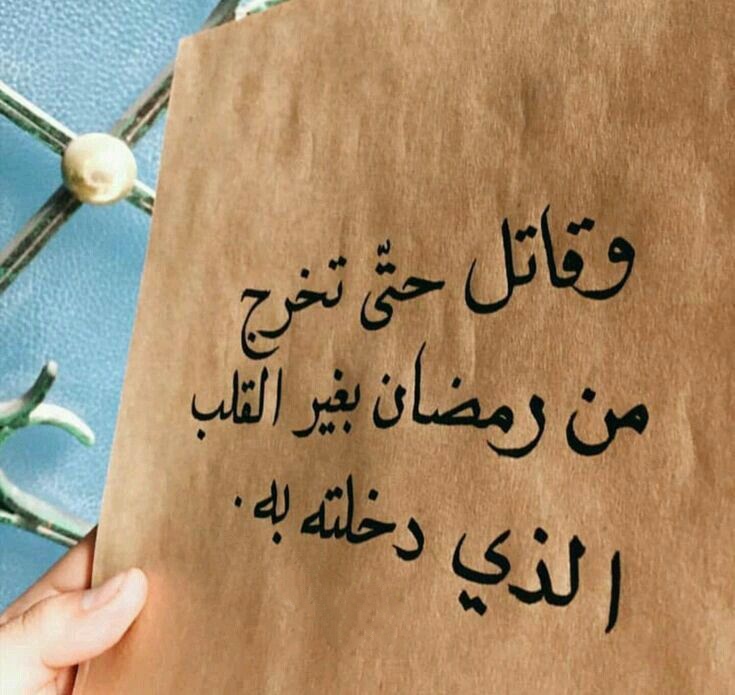 وقاتل حتّى تخرج
من رمضان بغير القلب
الذي دخلته به.